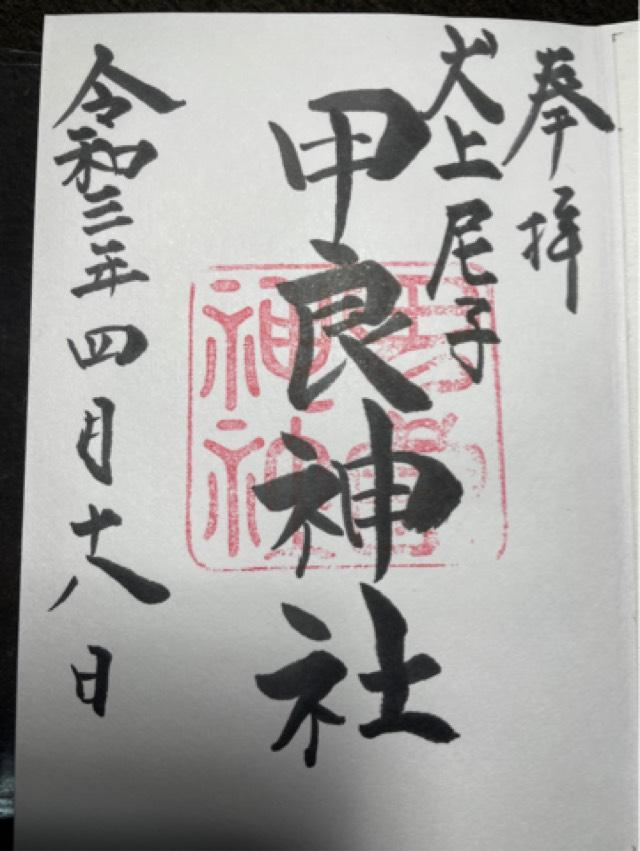 奉拝
犬上尼子
甲良神社
令和三年四月十八日
甲良
神社